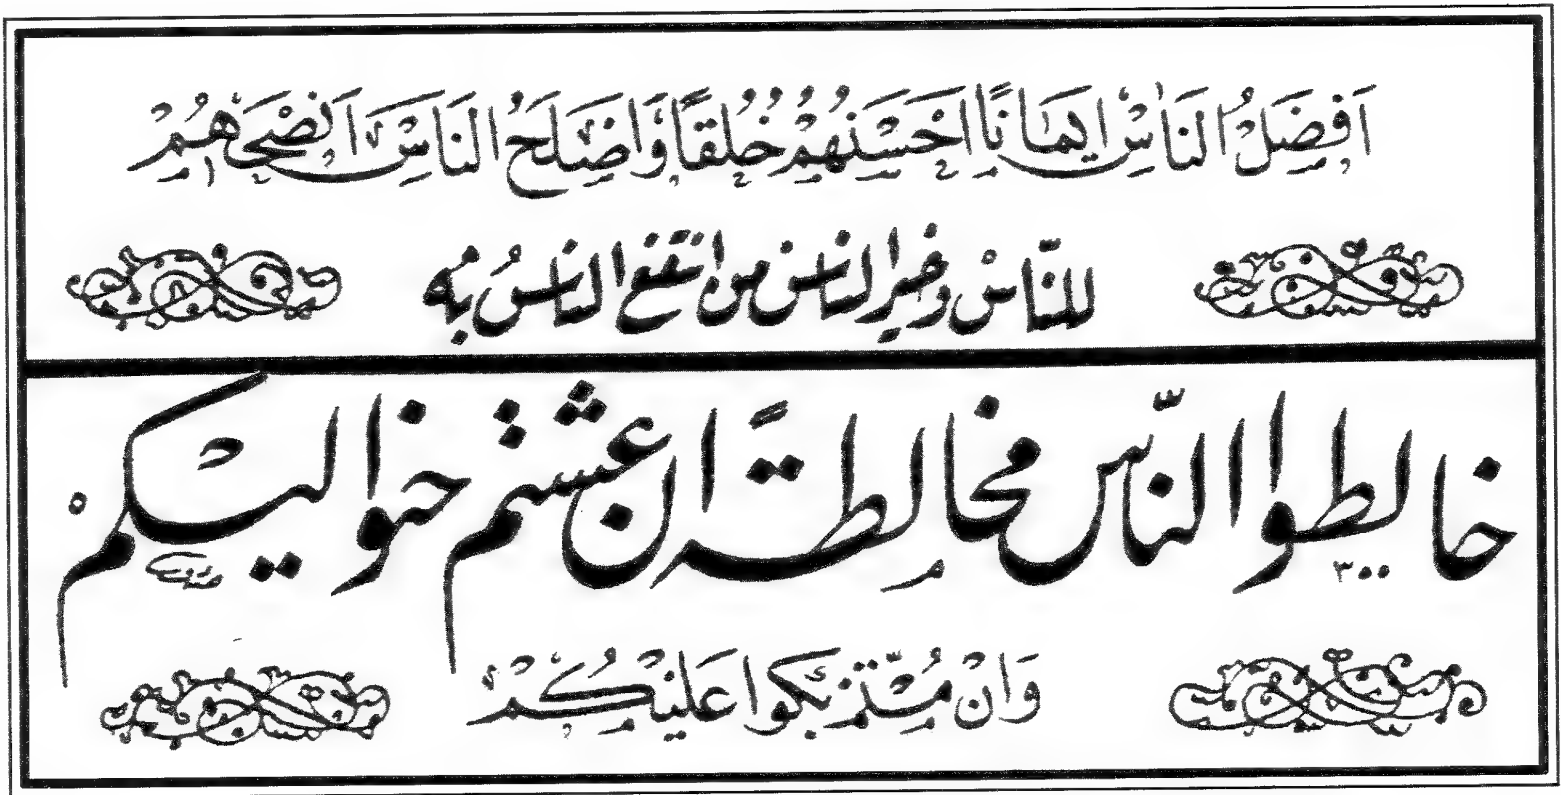 اَفضَلُ النَاسِ ايمَانًا اَحْسَنُهُمْ خُلُقًا وَاَصْلَحُ النَاسِ اَنْصَحُهُمْ
للنّاسْ وخير الناس من انتفع الناسُ بُه
خالطوا النّاس مخالطةً ان عشتم حنوا ليكم
٣٠٠
وَاِنْ مُتّمْ بَكوا عَلَيْكُمْ